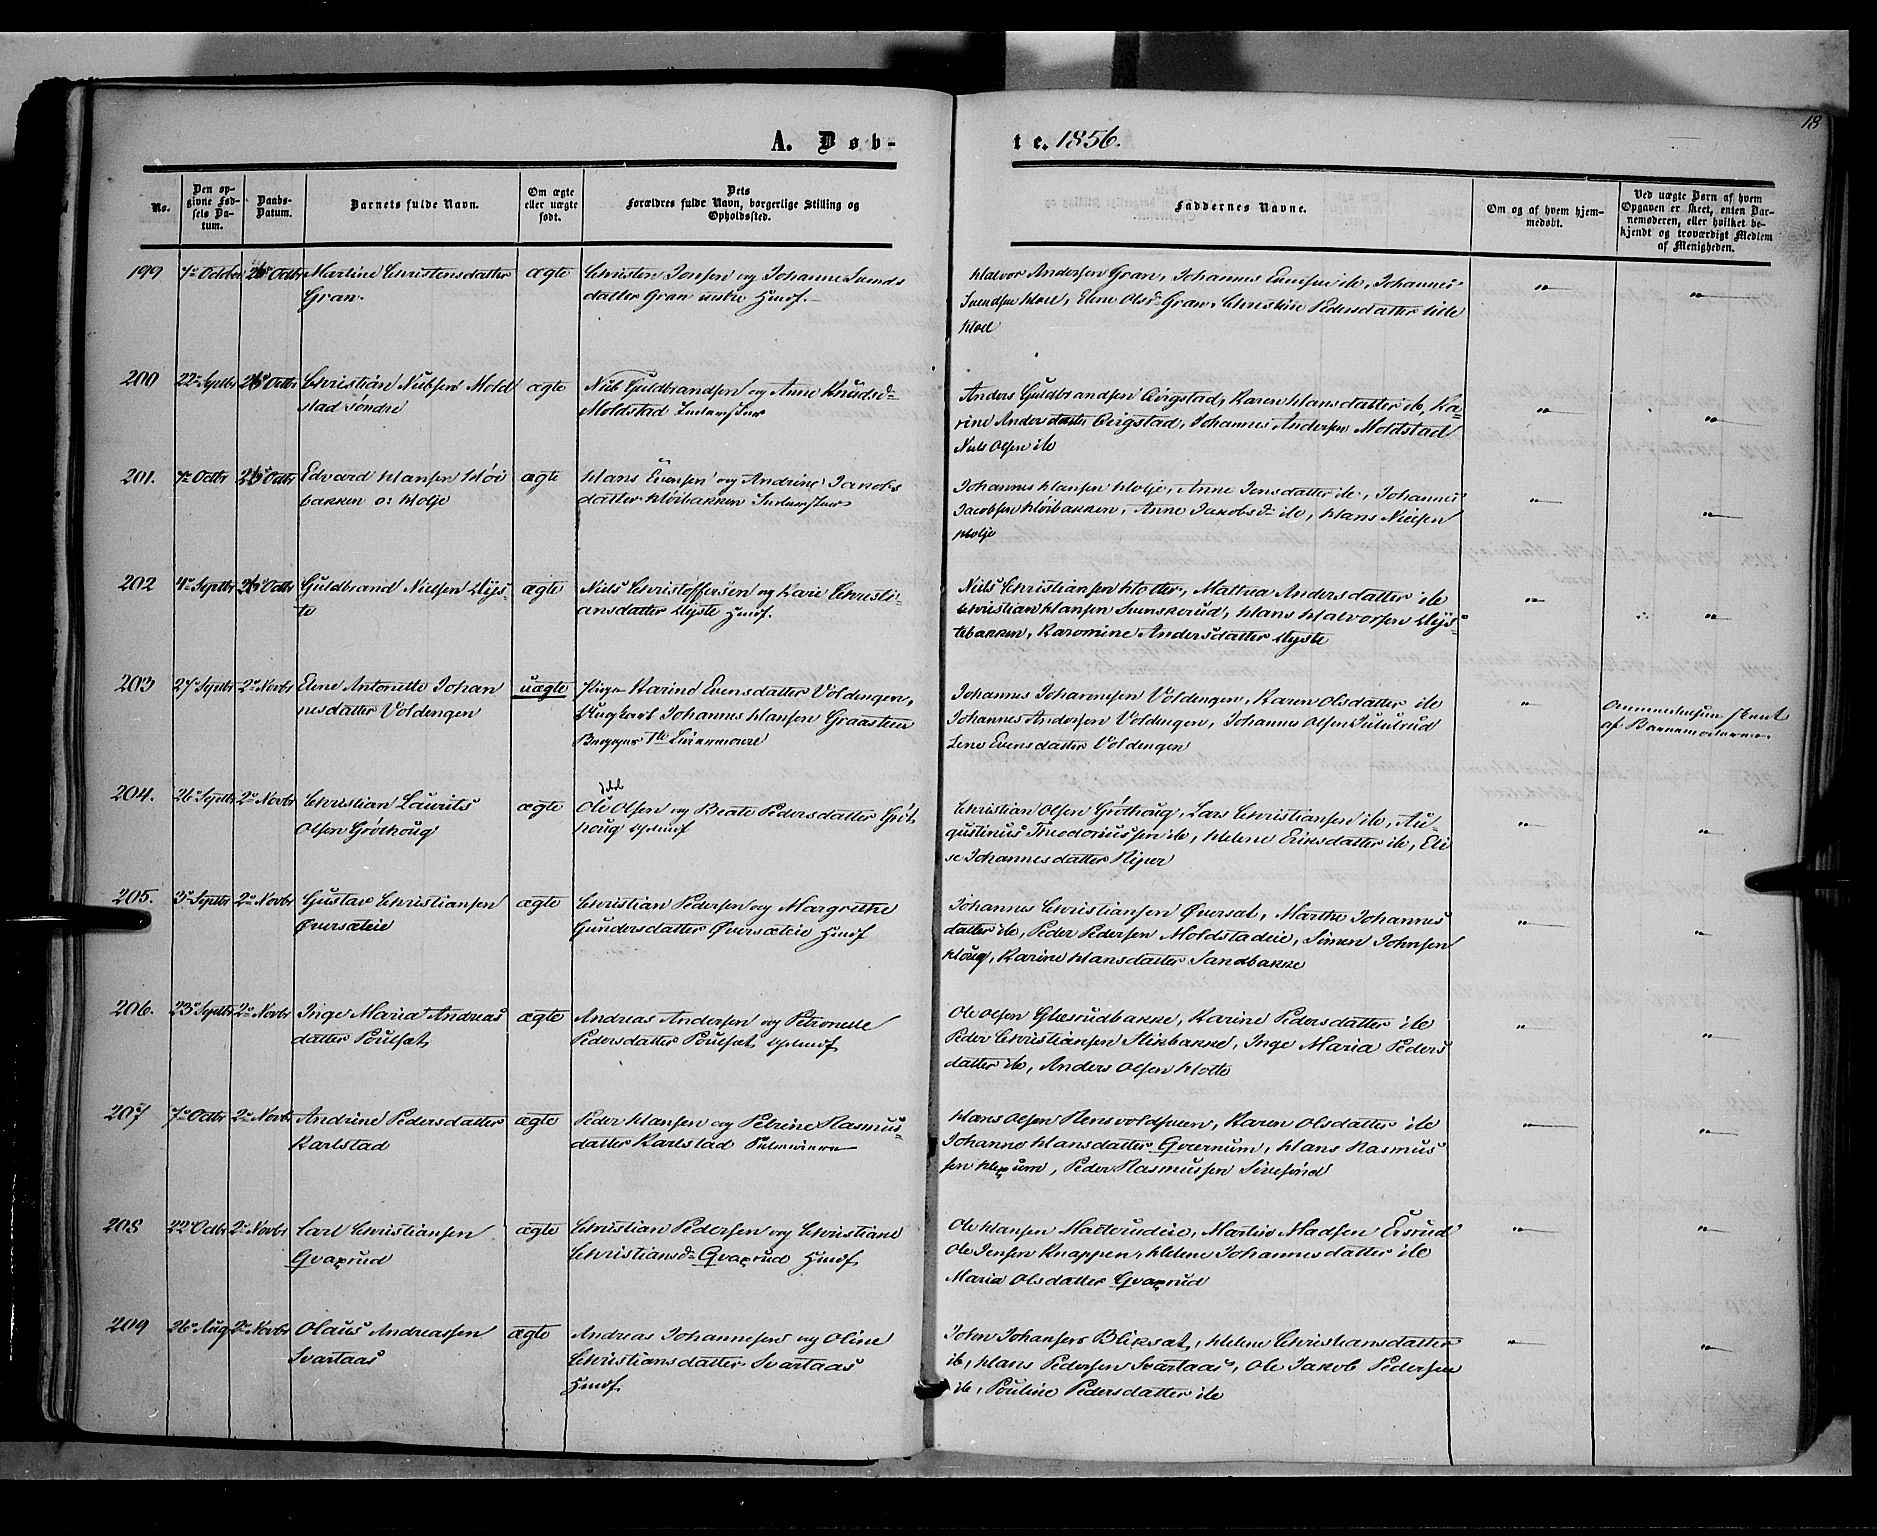 18
A. Døb-
te. 1856.
No.
Den op-
givne Fød-
sels Da-
tum.
Daabs-
Datum.
Barnets fulde Navn.
Om ægte
eller uægte
født.
Dets
Forældres fulde Navn, borgerlige Stilling og
Opholdssted.
Faddernes Navne.
Om og af hvem hjem-
medøbt.
Ved uægte Børn af hvem
Opgaven er skeet, enten Bar-
nemoderen, eller hvilket be-
kjendt og troværdigt Medlem
af Menigheden.
199 7de October 26de Octbr Martine Christensdatter ægte Christen Jensen og Johanne Svends
Gran. datter Gran Huusf.
Halvor Andersen Gran, Johannes Evensen ib, Johannes
Svendsen Hoel, Elene Olsd. Gran, Christine Pedersdatter Lille
Hoel
200 22de Septbr 26de Octbr Christian Nielsen Mold ægte Niels Guldbrandsen og Anne Knudsd.
stad søndre Moldstad
Anders Guldbrandsen Eirgstad, Karen Hansdatter ib, Ka-
rine Andersdatter Eirgstad, Johannes Andersen Moldstad
Niels Olsen ib
201. 7de Octbr 26de Octbr Edvard Hansen Høi ægte Hans Evensen og Andrine Jakobs
bakken o: Holje datter Høibakken
Johannes Hansen Holje, Anne Jensdatter ib, Johannes
Jacobsen Høibakken, Anne Jakobsd. ib, Hans Nielsen
Holje
202 4de Septbr 26de Octbr Guldbrand Nielsen Lys- ægte Niels Christoffersen og Kari Christi-
te ansdatter Lyste Huusf.
Niels Christiansen Hotter, Mathea Andersdatter ib
Christian Hansen Svenskerud, Hans Halvorsen Lys-
tebakken, Karomine Andersdatter Lyste
203 27de Septbr 2den Novbr Elene Antonette Johan uægte Pige Karine Evensdatter Voldengen,
nesdatter Voldengen Ungkarl Johannes Hansen Graasteen
Begges 1te Leiermaal
Johannes Johannesen Voldengen, Karen Olsdatter ib
Johannes Andersen Voldengen, Johannes Olsen
Lene Evensdatter Voldengen
af Barnemoderen.
204. 26de Septbr 2den Novbr Christian Laurits ægte Ole Olsen og Beate Pedersdatter Grøt
Olsen Grøthoug houg
Christian Olsen Grøthoug, Lars Christiansen ib, Au-
gustinus Theodoriussen ib, Helene Eriksdatter ib, Eli
se Johannesdatter
205. 3de Septbr 2den Novbr Gustav Christiansen ægte Christian Pedersen og Margrethe
Øversæteie Gundersdatter Øversæteie Huusf
Johannes Christiansen Øversæt, Marthe Johannes
datter ib, Peder Pedersen Moldstadeie, Simen Johnsen
Houg, Karine Hansdatter Sandbakke
206. 23de Septbr 2den Novbr Inge Maria Andreas ægte Andreas Andersen og Petronelle
datter Poulsæt Pedersdatter Poulsæt
Ole Olsen Glæsrudbakke, Karine Pedersdatter ib
Peder Christiansen Slikbakke, Inge Maria Peders
datter ib, Anders Olsen Hotte
207 7de Octbr 2den Novbr Andrine Pedersdatter ægte Peder Hansen og Petrine Rasmus-
Karlstad datter Karlstad
Hans Olsen Rensvoldsveen, Karen Olsdatter ib
Johanne Hansdatter Qværnum, Hans Rasmus
sen Hexum, Peder Rasmussen
208 22de Octbr 2den Novbr Carl Christiansen ægte Christian Pedersen og Christiane
Qvaxrud Christiansd. Qvaxrud Huusf
Ole Hansen, Martin Madsen Eirud
Ole Jensen Knappen, Helene Johannesdatter ib
Maria Olsdatter Qvaxrud
209 26de Aug 2den Novbr Olaus Andreassen ægte Andreas Johannesen og Oline
Svartaas Christiansdatter Svartaas
Huusf
John Johansen Bliksæt, Helene Christiansdatter
ib, Hans Pedersen Svartaas, Ole Jakob Pedersen
ib, Pouline Pedersdatter ib